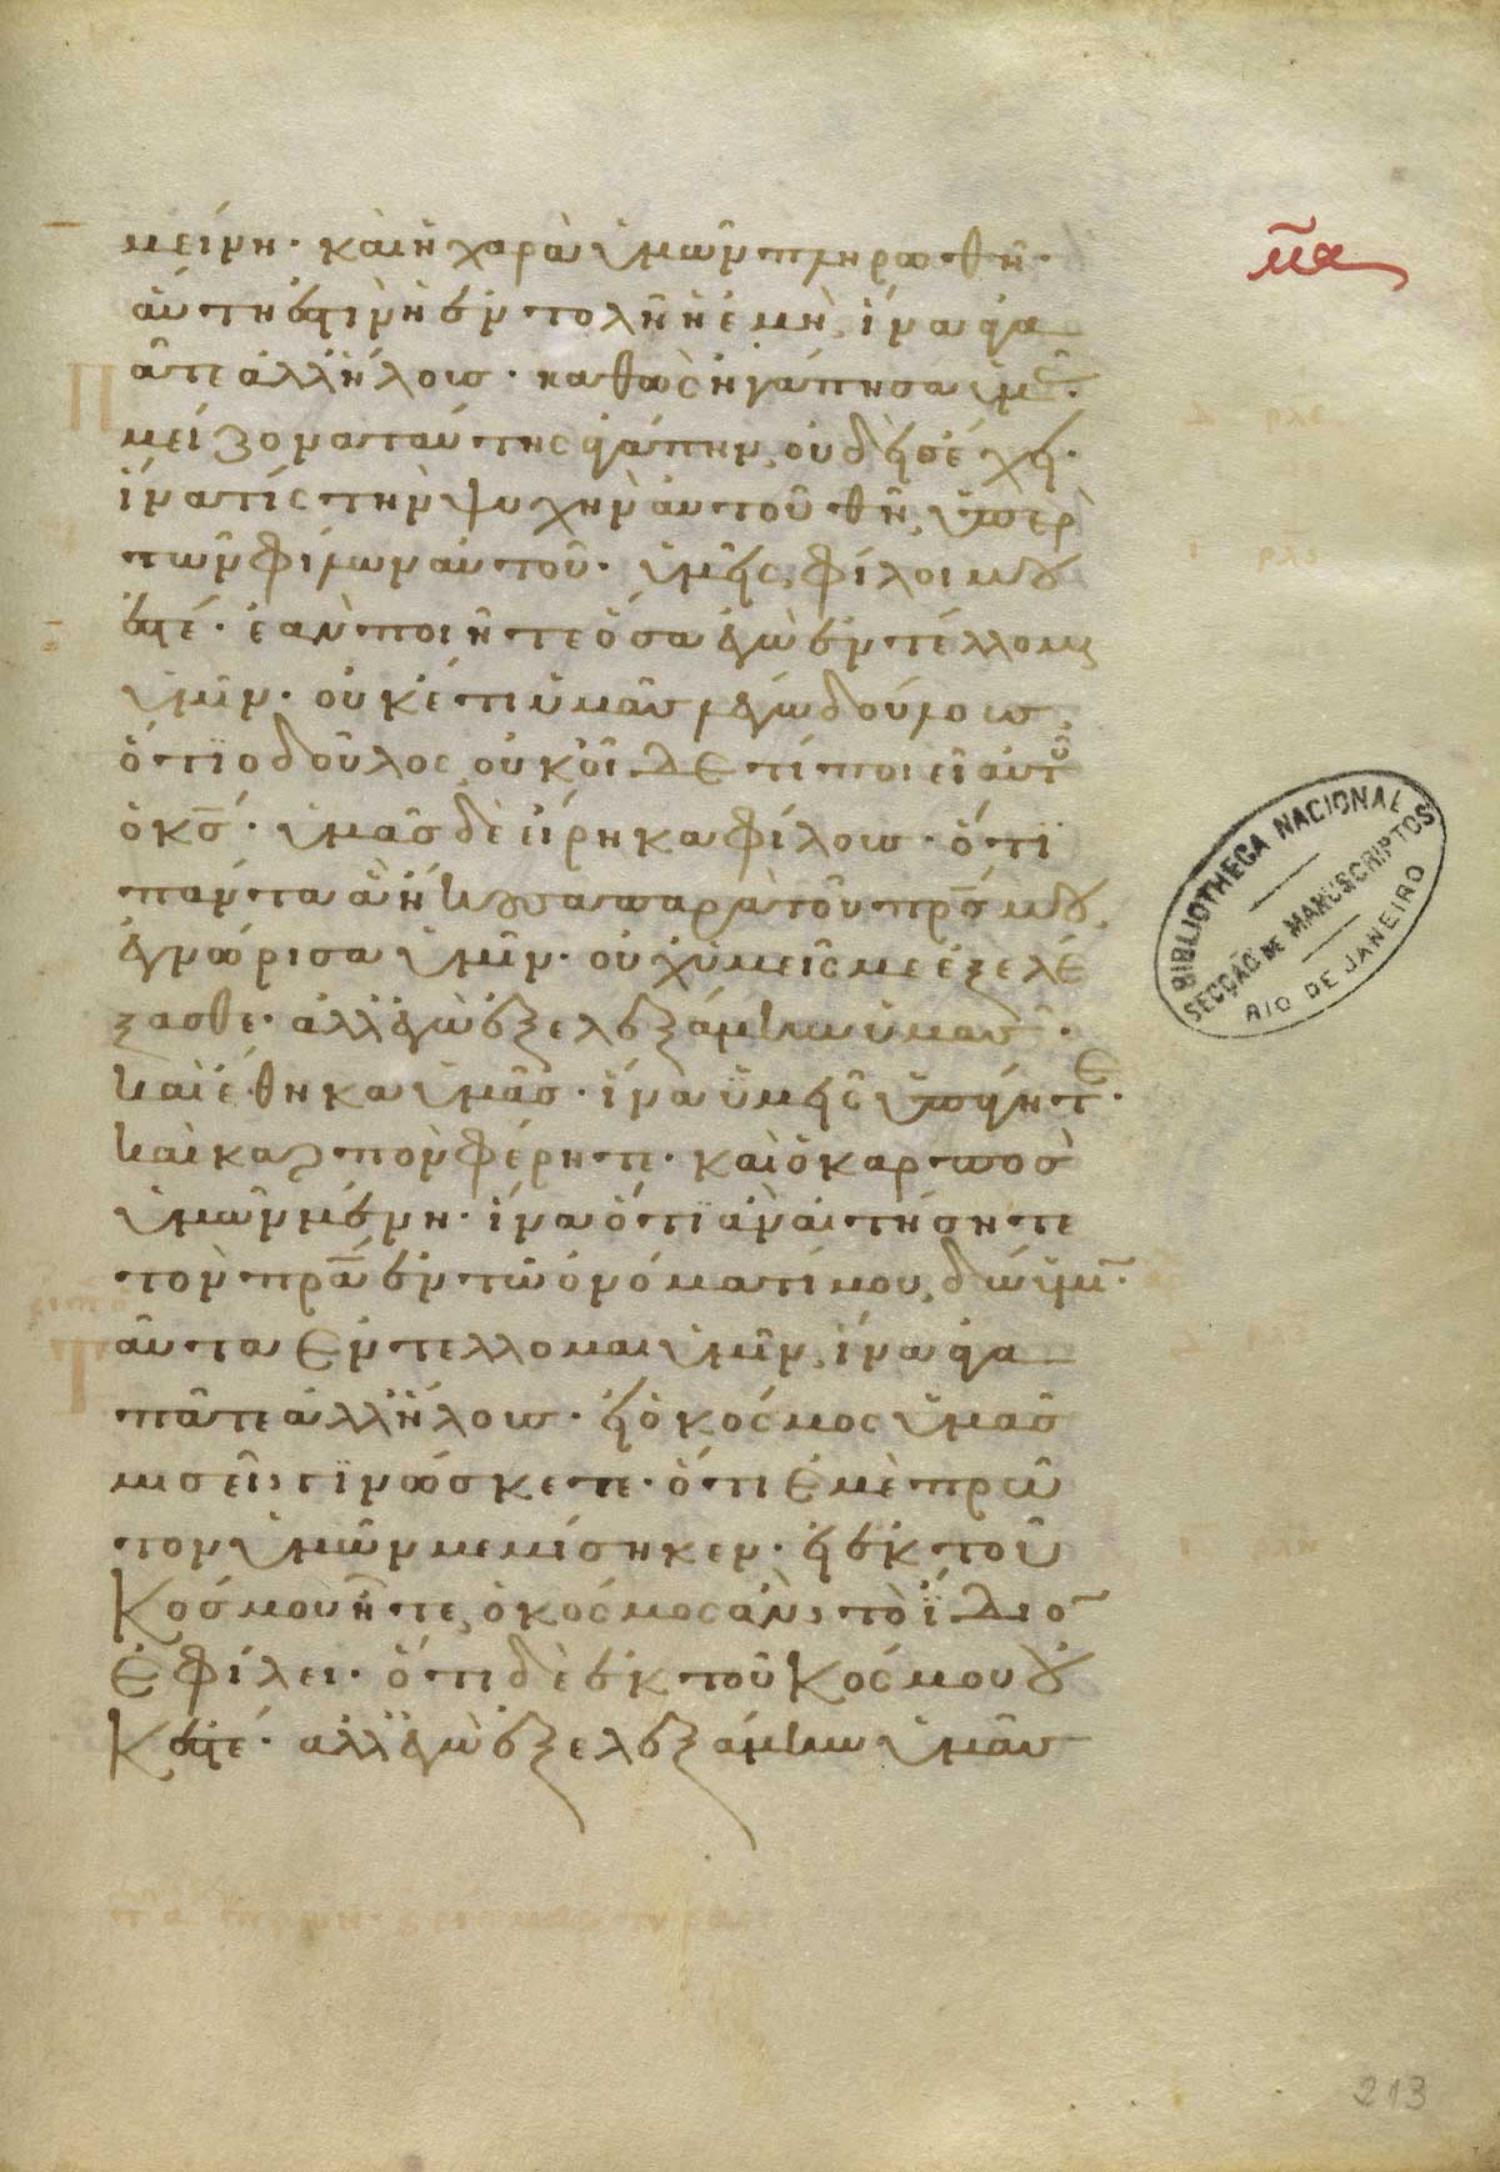 μα
μείνη· καὶ ἡ χαρὰ ὑμῶν πληρωθῆ·
ἁύτη ἐστιν ἡ ἐντολὴ ἡ ἐμὴ, ἵνα ἀγα
πᾶτε ἀλλήλοις· καθὼς ἠγάπησα ὑμᾶς·
μείζονα ταύτης ἀγάπην, οὐδεὶς ἔχει·
ἵνα τίς τὴν ψυχὴν αὐτοῦ θῆ, ὑπὲρ
τῶν φίλων αὐτοῦ· ὑμεῖς, φίλοι μου
ἐστέ· ἐὰν ποιῆτε ὅσα ἐγὼ ἐντέλλομαι
ὑμῖν· οὐκέτι ὑμᾶς λέγω δούλοις,
ὅτι ὁ δοῦλος, οὐκ οἶδε τί ποιεῖ αὐτοῦ
ὁ κς· ὑμᾶς δὲ εἴρηκα φίλοις· ὅτι
πάντα ἃ ἤκουσα παρὰ τοῦ πρς μου,
ἐγνώρισα ὑμῖν· οὐχ ὑμεῖς με ἐξελέ
ξασθε· ἀλλ' ἐγὼ ἐξελεξάμην ὑμᾶς·
καὶ ἔθηκα ὑμᾶς· ἵνα ὑμεῖς ὑπάγητε·
καὶ καρπὸν φέρητε· καὶ ὁ καρπὸς
ὑμῶν μένη· ἵνα ὅτι ἂν αἰτήσητε
τὸν πρα ἐν τῶ ὀνόματί μου, δώη ὑμῖν·
αῦτα ἐντέλλομαι ὑμῖν, ἵνα ἀγα
πᾶτε ἀλλήλοις· εἰ ὁ κόσμος ὑμᾶς
μισεῖ, γινώσκετε· ὅτι ἐμὲ πρῶ
τον ὑμῶν μεμίσηκεν· εἰ ἐκ τοῦ
κόσμου ἦτε, ὁ κόσμος ἂν, τὸ ἴδιον
ἐφίλει· ὅτι δὲ ἐκ τοῦ κόσμου οὐ
κ ἐστέ· ἀλλ' ἐγὼ ἐξελεξάμην ὑμᾶς
BIBLIOTHECA NACIONAL
SECÇÃO DE MANUSCRIPTOS
RIO DE JANEIRO
213